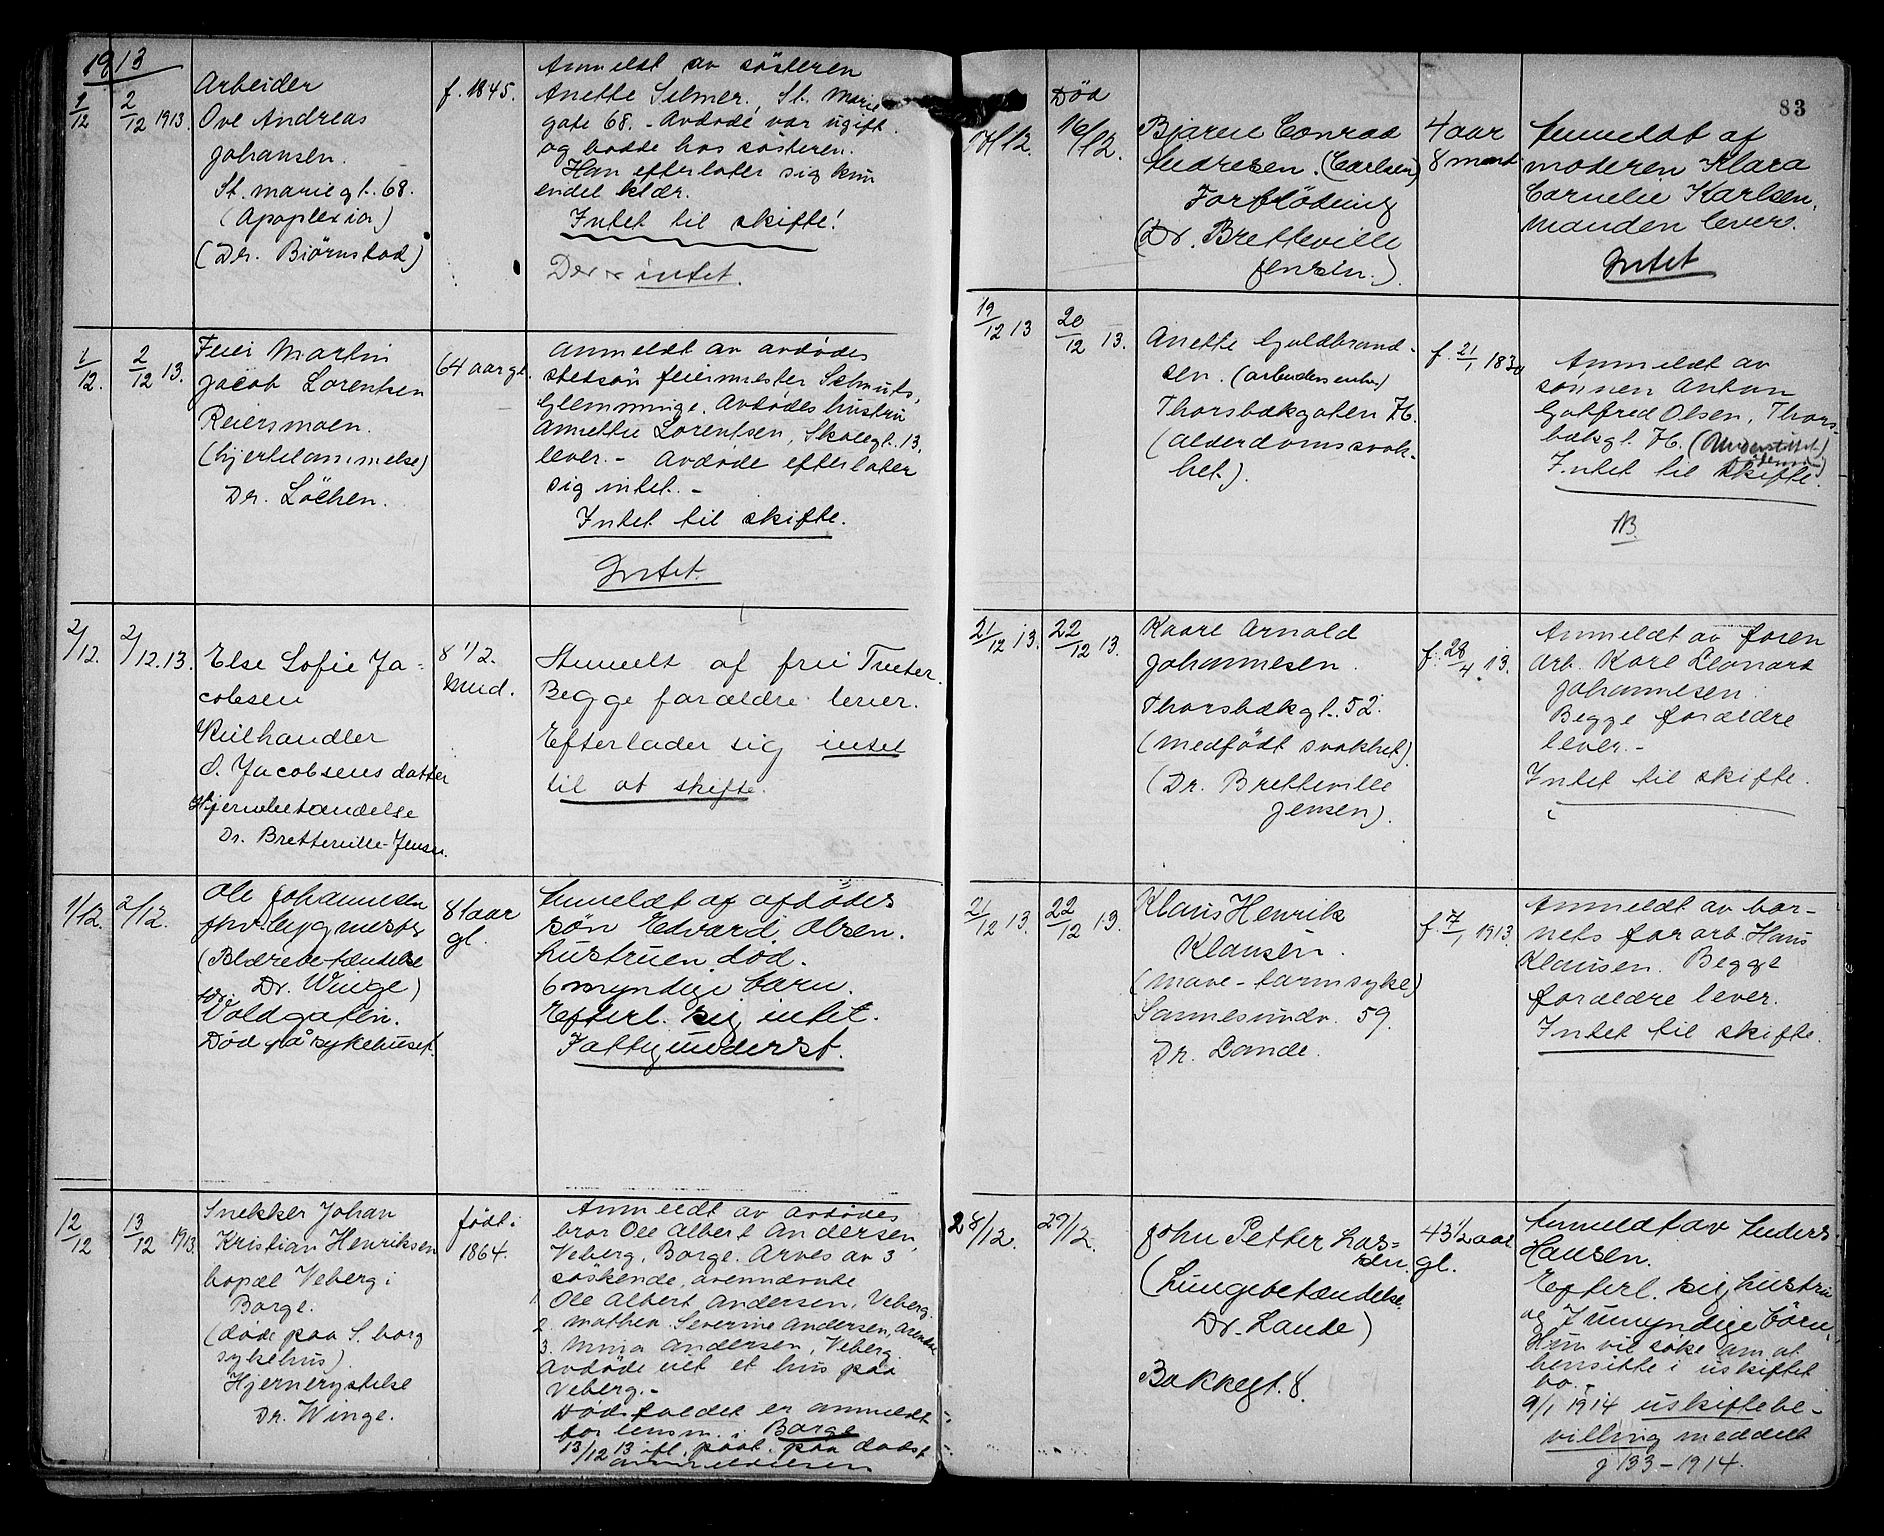 1913
1/12
2/12 1913.
Arbeider
Ove Andreas
Johansen.
St. mariegt. 68.
(Apoplexia)
(Dr. Biørnstad)
f. 1845.
Anmeldt av søsteren
Anette Selmer, St. Marie
gate 68. - Avdøde var ugift
og bodde hos søsteren.
Han efterlater sig kun
endel klær.
Intet til skifte!
intet.
1/12.
2/12 13.
Feier Martin
Jacob Lorentsen
Reiersmoen.
(hjertelammelse)
Dr. Löchen.
64 aar gl.
Anmeldt av avdødes
stedsøn feiermester
Glemminge. Avdødes hustru
Annette Lorentsen, Skolegt. 13,
lever. - Avdøde efterlater
sig intet. -
Intet til skifte.
Intet.
2/12.
2/12. 13.
Else Sofie Ja-
cobsen
Kulhandler
O. Jacobsens datter
Hjernebetændelse
Dr. Bretteville-Jensen.
8 1/2.
mnd.
Anmelt af fru Tveter.
Begge forældre lever.
Efterlader sig intet
til at skifte.
1/12.
2/12.
Ole Johannesen
fhv. bygmester
(Blærebetændelse
Dr. Winge)
Voldgaten.
Død på sykehuset.
81 aar
gl.
Anmeldt af afdødes
søn Edvard Olsen.
hustruen død.
6 myndige børn.
Efterl. sig intet.
Fattigunderst.
12/12
13/12 1913.
Snekker Johan
Kristian Henriksen
bopæl Veberg i
Borge.
(døde paa S. borg
sykehus).
Hjernerystelse
Dr. Winge.
født i
1864.
Anmeldt av avdødes
bror Ole Albert Andersen,
Veberg, Borge. Arves av 3
søskende, ovennævnte
1. Ole Albert Andersen, Veberg.
2. Mathea Severine Andersen,
3. Mina Andersen, Veberg.
Avdøde eiet et hus paa
Veberg. -
Dødsfaldet er anmeldt
for lensm. i Borge
13/12 13 ifl. paat. paa dødsf.
anmeldelsen
83
Død
17/12.
16/12.
Bjarne Conrad
Andresen. (Carlsen)
Forblödning
(Dr. Bretteville
Jensen.)
4 aar
8 mnd.
Anmeldt af
moderen Klara
Cornelie Karlsen.
Manden lever.
Intet
19/12 13
20/12 13.
Anette Guldbrand-
sen. (arbeidersenke)
Thorsbækgaten 76.
(alderdomssvak-
het).
f. 21/1 1830
Anmeldt av
sønnen Anton
Gotfred Olsen, Thors-
bækgt. 76.
Intet til skifte.
NB.
21/12 13.
22/12 13.
Kaare Arnold
Johannesen.
Thorsbækgt. 52.
(medfødt svakhet).
(Dr. Bretteville
Jensen).
f. 28/4 13.
Anmeldt av faren
arb. Karl Leonard
Johannesen.
Begge forældre
lever. -
Intet til skifte.
21/12 13.
22/12 13.
Klaus Henrik
Klausen.
(mave-tarmsyke)
Sannesundv. 59.
Dr. Lande.
f. 7/1 1913.
Anmeldt av bar-
nets far arb. Hans
Klausen. Begge
forældre lever.
Intet til skifte.
28/12.
29/12.
John Petter Lar-
sen.
(Lungebetændelse.
Dr. Lande)
Bakkegt. 8.
43 1/2 aar
gl.
Anmeldt av Anders
Hansen.
Efterl. sig hustru
og 7 umyndige børn.
Hun vil søke om at
hensitte i uskiftet
bo. -
9/1 1914 uskiftebe-
villing meddelt
j 133 - 1914.